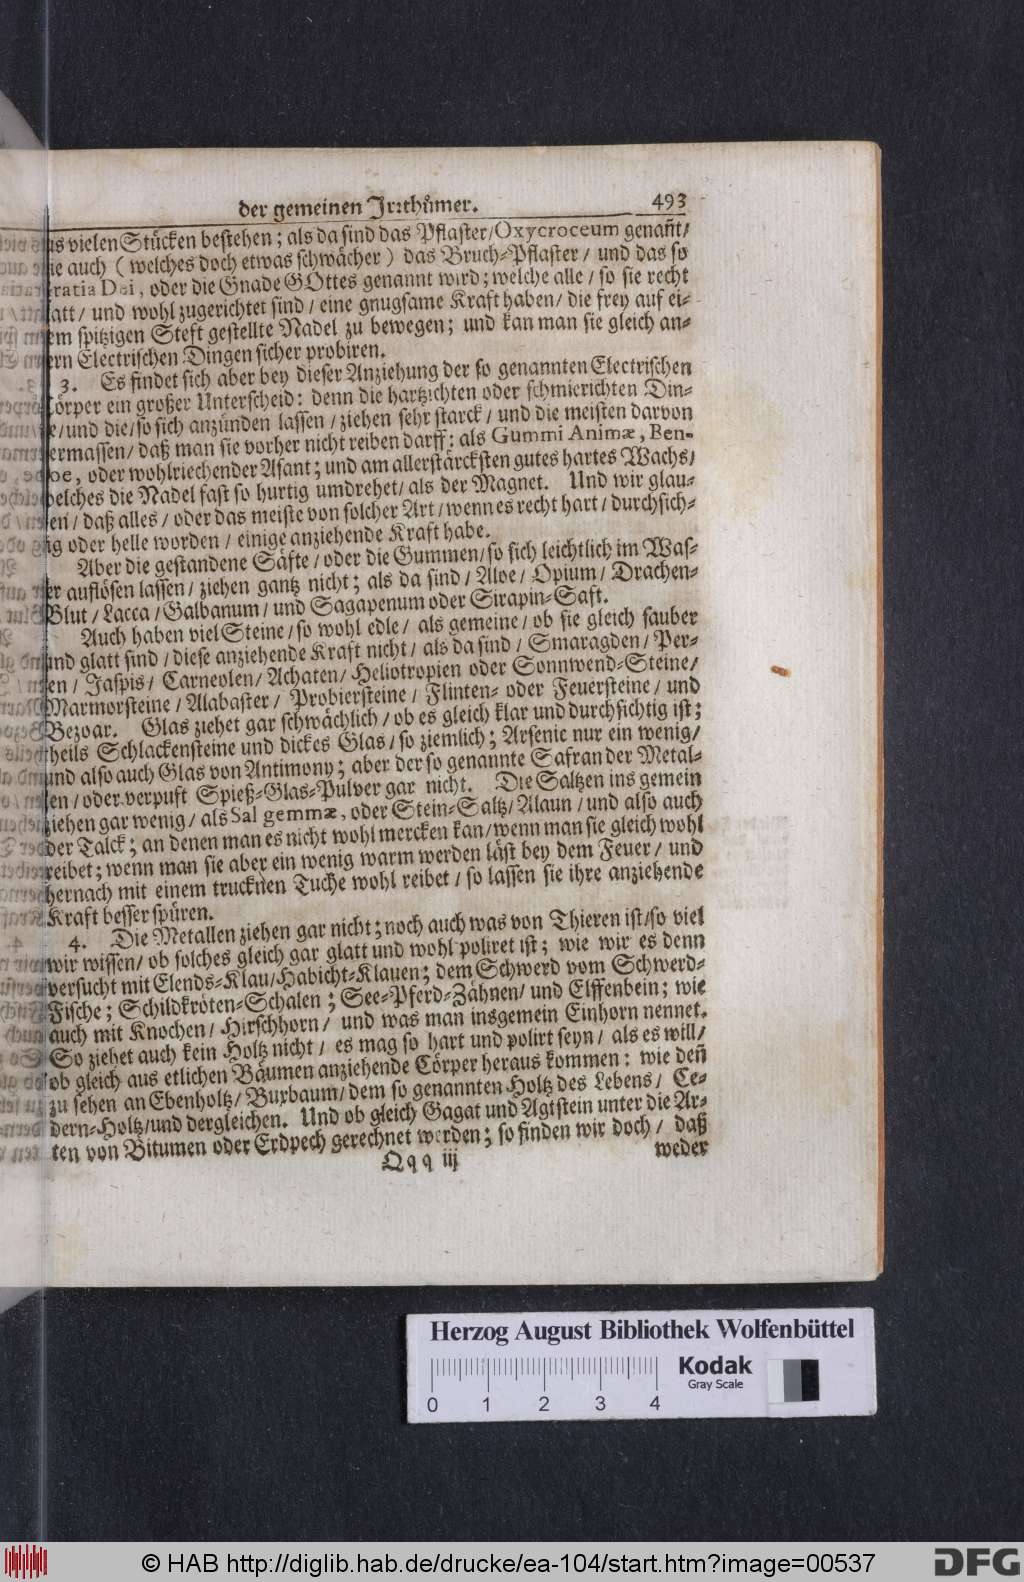 der gemeinen Jrꝛthůmer. 493
us vielen Stücken bestehen; als da sind das Pflaster/ Oxycroceum genañt/
ie auch (welches doch etwas schwächer) das Bruch-Pflaster/ und das so
ratia Dei, oder die Gnade GOttes genannt wird; welche alle/ so sie recht
latt/ und wohl zugerichtet sind/ eine gnugsame Kraft haben/ die frey auf ei-
em spitzigen Steft gestellte Nadel zu bewegen; und kan man sie gleich an-
ern Electrischen Dingen sicher probiren.
3. Es findet sich aber bey dieser Anziehung der so genannten Electrischen
Cörper ein großer Unterscheid: denn die hartzichten oder schmierichten Din-
e/ und die/ so sich anzünden lassen/ ziehen sehr starck/ und die meisten darvon
ermassen/ daß man sie vorher nicht reiben darff: als Gummi Animæ, Ben-
oe, oder wohlriechender Asant; und am allerstärcksten gutes hartes Wachs/
elches die Nadel fast so hurtig umdrehet/ als der Magnet. Und wir glau-
en/ daß alles/ oder das meiste von solcher Art/ wenn es recht hart/ durchsich-
ig oder helle worden/ einige anziehende Kraft habe.
Aber die gestandene Säfte/ oder die Gummen/ so sich leichtlich im Was-
er auflösen lassen/ ziehen gantz nicht; als da sind/ Aloe/ Opium/ Drachen-
Blut/ Lacca/ Galbanum/ und Sagapenum oder Sirapin-Saft.
Auch haben viel Steine/ so wohl edle/ als gemeine/ ob sie gleich sauber
und glatt sind/ diese anziehende Kraft nicht/ als da sind/ Smaragden/ Per-
en/ Jaspis/ Carneolen/ Achaten/ Heliotropien oder Sonnwend-Steine/
Marmorsteine/ Alabaster/ Probiersteine/ Flinten- oder Feuersteine/ und
Bezoar. Glas ziehet gar schwächlich/ ob es gleich klar und durchsichtig ist;
theils Schlackensteine und dickes Glas/ so ziemlich; Arsenic nur ein wenig/
und also auch Glas von Antimony; aber der so genannte Safran der Metal-
len/ oder verpuft Spieß-Glas-Pulver gar nicht. Die Saltzen ins gemein
ziehen gar wenig/ als Sal gemmæ, oder Stein-Saltz/ Alaun/ und also auch
der Talck; an denen man es nicht wohl mercken kan/ wenn man sie gleich wohl
reibet; wenn man sie aber ein wenig warm werden läst bey dem Feuer/ und
hernach mit einem trucknen Tuche wohl reibet/ so lassen sie ihre anziehende
Kraft besser spüren.
4. Die Metallen ziehen gar nicht; noch auch was von Thieren ist/ so viel
wir wissen/ ob solches gleich gar glatt und wohl poliret ist; wie wir es denn
versucht mit Elends-Klau/ Habicht-Klauen; dem Schwerd vom Schwerd-
Fische; Schildkröten-Schalen; See-Pferd-Zähnen/ und Elffenbein; wie
auch mit Knochen/ Hirschhorn/ und was man insgemein Einhorn nennet.
So ziehet auch kein Holtz nicht/ es mag so hart und polirt seyn/ als es will/
ob gleich aus etlichen Bäumen anziehende Cörper heraus kommen: wie deñ
zu sehen an Ebenholtz/ Buxbaum/ dem so genannten Holtz des Lebens/ Ce-
dern-Holtz/ und dergleichen. Und ob gleich Gagat und Agtstein unter die Ar-
ten von Bitumen oder Erdpech gerechnet werden; so finden wir doch/ daß
Qqq iij weder
Herzog August Bibliothek Wolfenbüttel
Kodak
Gray Scale
0 1 2 3 4
© HAB http://diglib.hab.de/drucke/ea-104/start.htm?image=00537
DFG